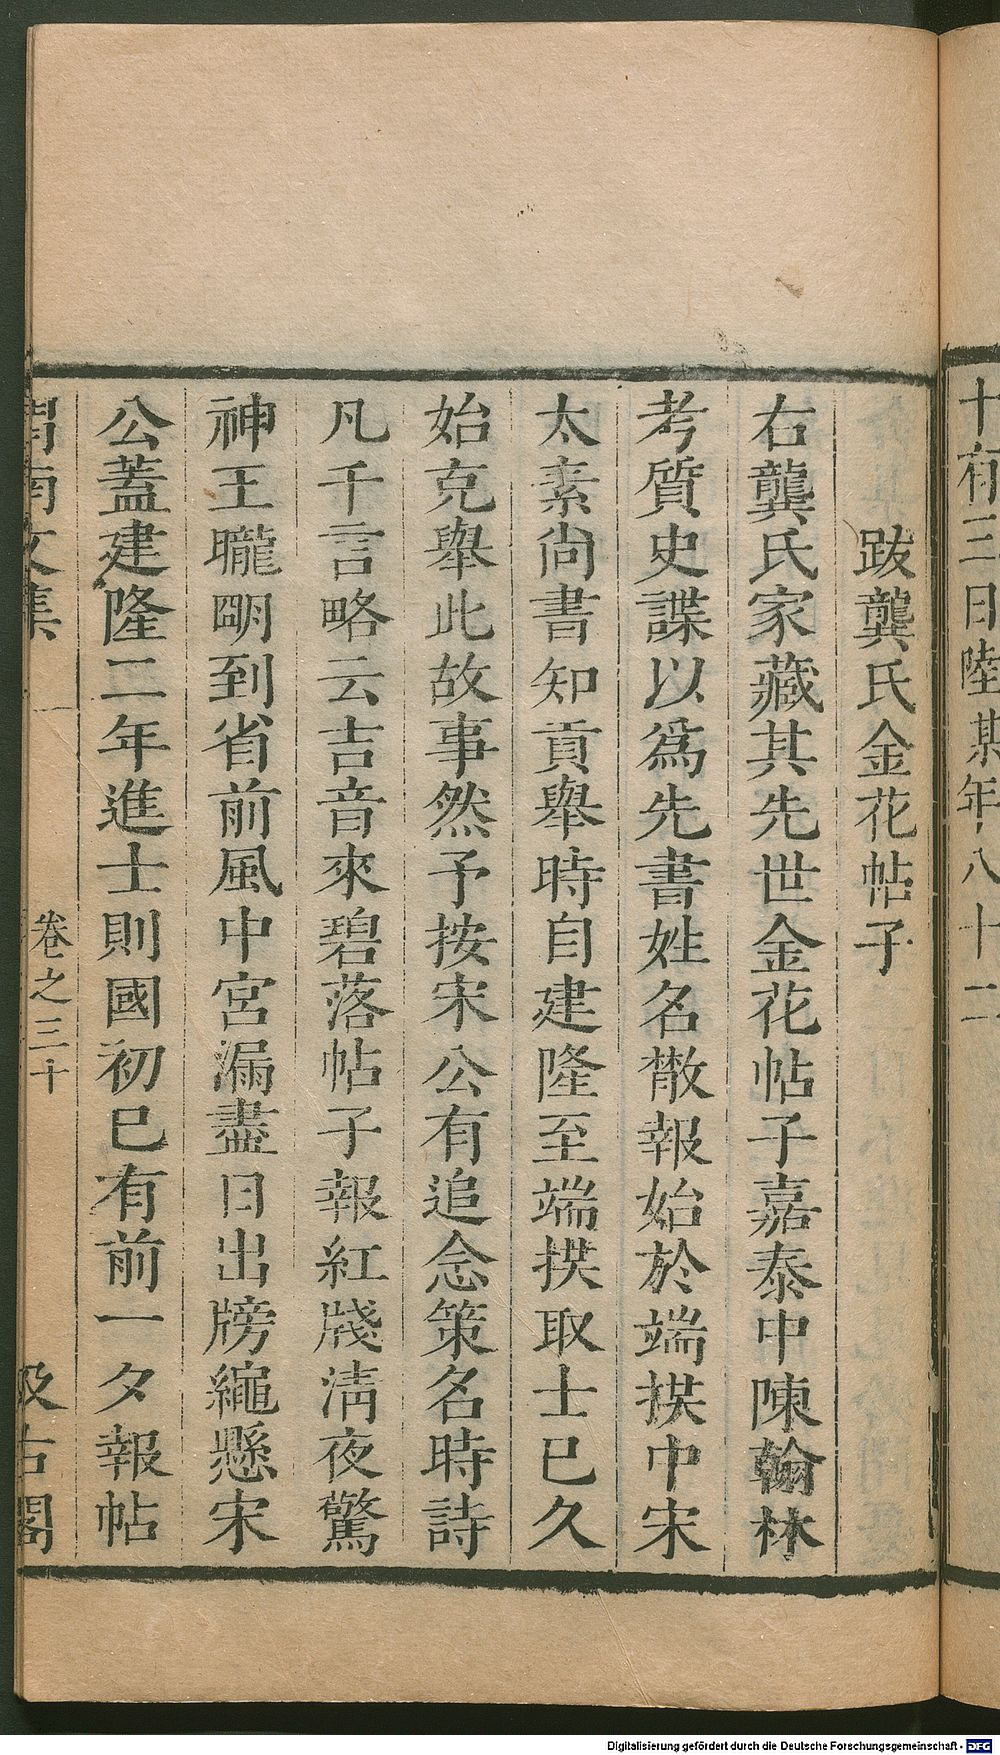 十有三日陸某年八十二
跋龔氏金花帖子
右龔氏家藏其先世金花帖子嘉泰中陳翰林
考質史諜以爲先書姓名散報始於端拱中宋
太素尚書知貢舉時自建隆至端拱取士已久
始克舉此故事然予按宋公有追念策名時詩
凡千言略云吉音來碧落帖子報紅牋淸夜驚
神王曨明到省前風中宮漏盡日出牓繩懸宋
公蓋建隆二年進士則國初已有前一夕報帖
渭南文集 卷之三十 汲古閣
Digitalisierung gefördert durch die Deutsche Forschungsgemeinschaft - DFG